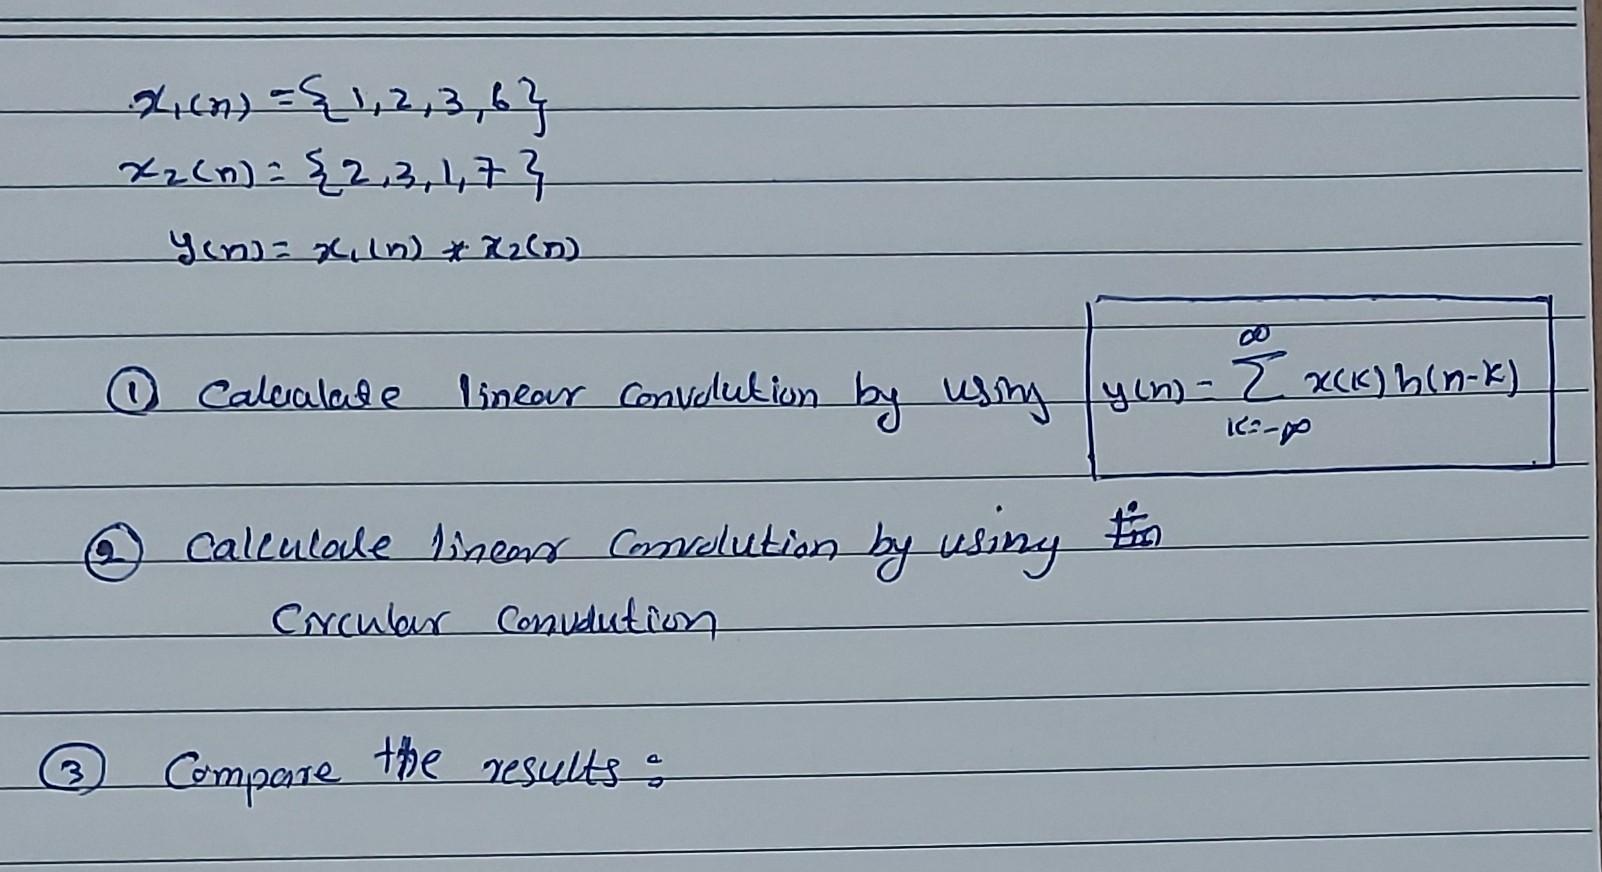 x₁(n) = {1,2,3,6}
x₂(n) = {2,3,1,7}
y(n) = x₁(n) * x₂(n)
① Calculate linear Convolution by using y(n) = ∞ Σ k=-∞ x(k) h(n-k)
② Calculate linear Convolution by using
Circular Convolution
③ Compare the results: